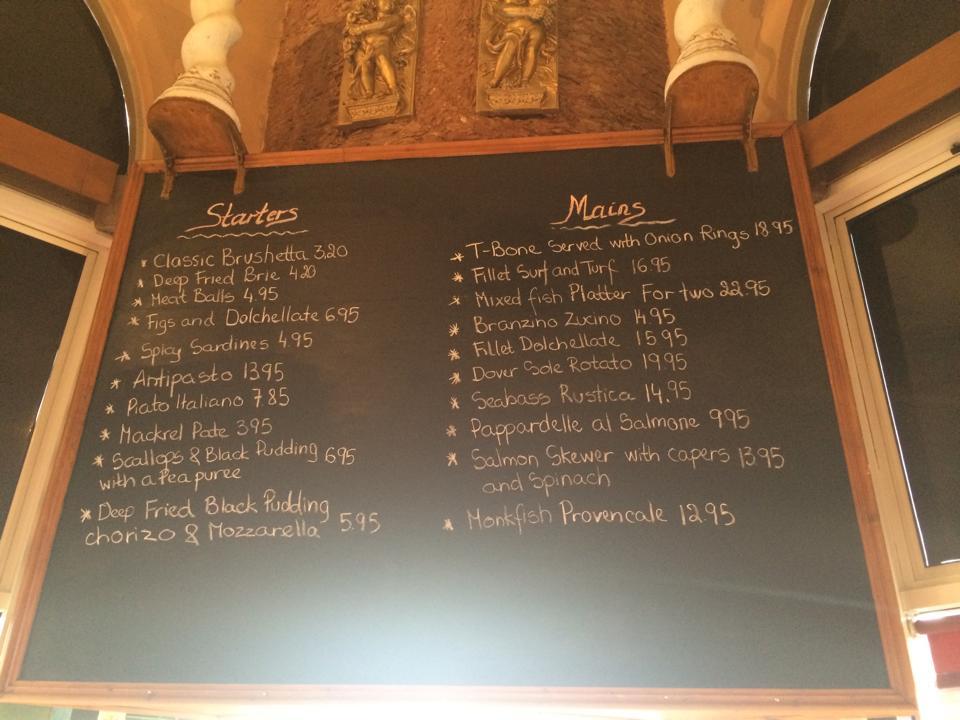 Starters
* Classic Brushetta 3,20
* Deep Fried Brie 4.20
* Meat Balls 4.95
* Figs and Dolchellate 6.95
* Spicy Sardines 4.95
* Antipasto 13.95
* Piato Italiano 7.85
* Mackrel Pate 3.95
* Scallops & Black Pudding 6.95
with a Pea puree
* Deep Fried Black Pudding
chorizo & Mozzarella 5.95
Mains
* T-Bone Served with Onion Rings 18.95
* Fillet Surf and Turf 16.95
* Mixed fish Platter For two 22.95
* Branzino Zucino 14.95
* Fillet Dolchellate 15.95
* Dover Sole Rotato 19.95
* Seabass Rustica 14.95
* Pappardelle al Salmone 9.95
* Salmon Skewer with capers 13.95
and Spinach
* Monkfish Provencale 12.95